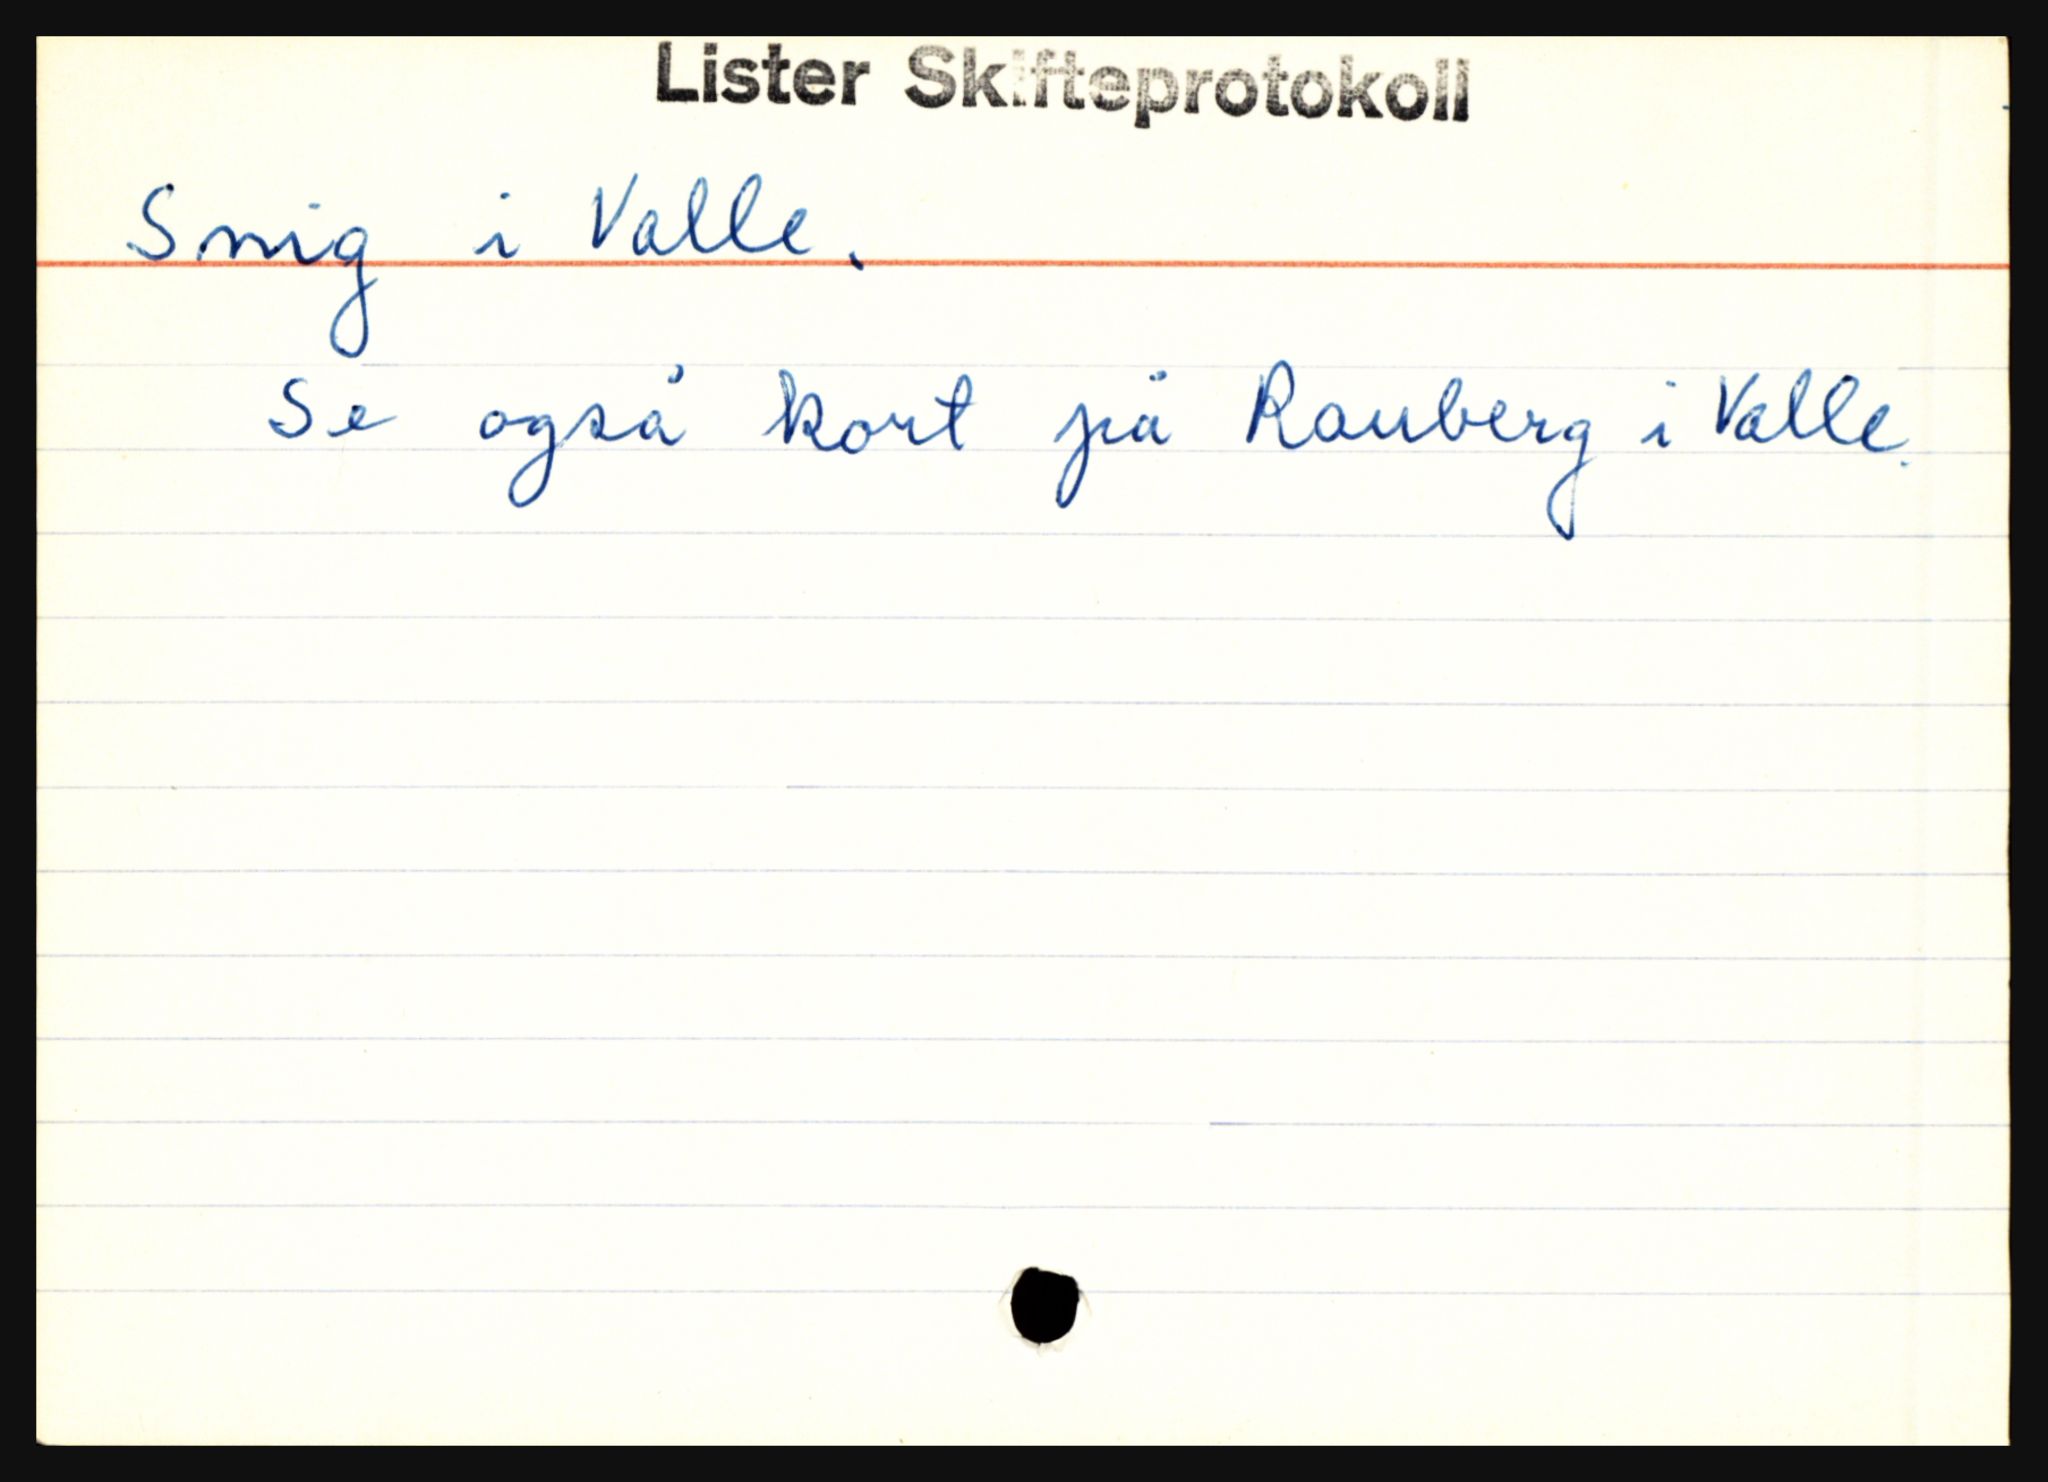 Lister Skifteprotokoll
Snig i Valle.
Se også kort på Rauberg i Valle.